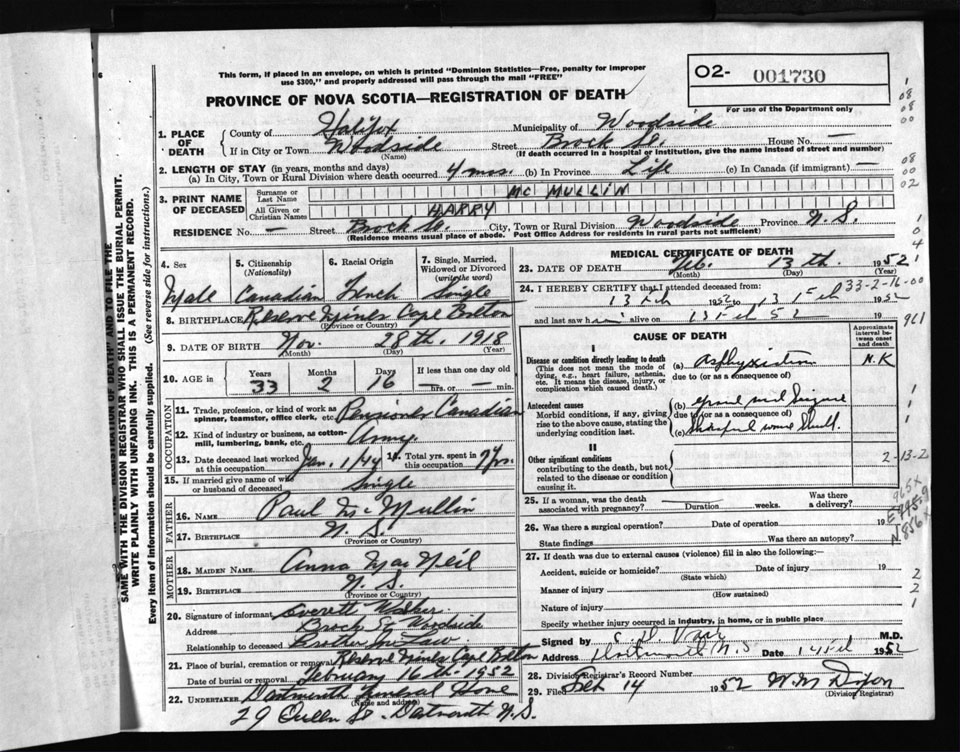 This form, if placed in an envelope, on which is printed "Dominion Statistics—Free, penalty for improper
use $300," and properly addressed will pass through the mail "FREE"
O2- 001730
For use of the Department only
PROVINCE OF NOVA SCOTIA—REGISTRATION OF DEATH
1. PLACE OF DEATH
County of Halifax Municipality of Woodside
If in City or Town Woodside Street Brock St. House No. —
(Name) (If death occurred in a hospital or institution, give the name instead of street and number)
2. LENGTH OF STAY (in years, months and days)
(a) In City, Town or Rural Division where death occurred 4 mos. (b) In Province Life (c) In Canada (if immigrant) —
3. PRINT NAME OF DECEASED
Surname or Last Name MC MULLIN
All Given or Christian Names HARRY
RESIDENCE No. — Street Brock St. City, Town or Rural Division Woodside Province N.S.
(Residence means usual place of abode. Post Office Address for residents in rural parts not sufficient)
4. Sex
Male
5. Citizenship (Nationality)
Canadian
6. Racial Origin
French
7. Single, Married, Widowed or Divorced (write the word)
Single
8. BIRTHPLACE Reserve Mines Cape Breton
(Province or Country)
9. DATE OF BIRTH Nov. 28th. 1918
(Month) (Day) (Year)
10. AGE in Years Months Days If less than one day old
33 2 16 — hrs. or — min.
OCCUPATION
11. Trade, profession, or kind of work as spinner, teamster, office clerk, etc. Pensioner Canadian
12. Kind of industry or business, as cotton-mill, lumbering, bank, etc. Army.
13. Date deceased last worked at this occupation Jan. 1/44 14. Total yrs. spent in this occupation yrs.
15. If married give name of wife or husband of deceased Single
FATHER
16. NAME Paul McMullin
17. BIRTHPLACE N.S.
(Province or Country)
MOTHER
18. MAIDEN NAME Anna MacNeil
19. BIRTHPLACE N.S.
(Province or Country)
20. Signature of informant Everett
Address Brock St Woodside
Relationship to deceased Brother In Law
21. Place of burial, cremation or removal Reserve Mines Cape Breton
Date of burial or removal February 16th 1952
22. UNDERTAKER Dartmouth Funeral Home
(Name and address)
29 Queen St. Dartmouth N.S.
MEDICAL CERTIFICATE OF DEATH
23. DATE OF DEATH Feb. 13th. 1952
(Month) (Day) (Year)
24. I HEREBY CERTIFY that I attended deceased from:
13 Feb 1952 to 13 Feb 1952
and last saw him alive on 13 Feb 52
33-2-16-00
CAUSE OF DEATH
Approximate interval between onset and death
I
Disease or condition directly leading to death
(This does not mean the mode of dying, e.g., heart failure, asthenia, etc. It means the disease, injury, or complication which caused death.)
(a) Asphyxiation N.K
due to (or as a consequence of)
Antecedent causes
Morbid conditions, if any, giving rise to the above cause, stating the underlying condition last.
(b) Grand mal Seizure
due to (or as a consequence of)
(c) Shrapnel wound Skull.
II
Other significant conditions
contributing to the death, but not related to the disease or condition causing it.
2-13-2
25. If a woman, was the death associated with pregnancy? Duration weeks. Was there a delivery?
26. Was there a surgical operation? Date of operation 19
State findings Was there an autopsy?
27. If death was due to external causes (violence) fill in also the following:—
Accident, suicide or homicide? Date of injury 19
(State which)
Manner of injury
(How sustained)
Nature of injury
Specify whether injury occurred in industry, in home, or in public place
Signed by M.D.
Address Dartmouth N.S Date 14 Feb 1952
28. Division Registrar's Record Number
29. Filed Feb 14 1952 W.M. Dixon
(Division Registrar)
SAME WITH THE DIVISION REGISTRAR WHO SHALL ISSUE THE BURIAL PERMIT.
WRITE PLAINLY WITH UNFADING INK. THIS IS A PERMANENT RECORD.
Every item of information should be carefully supplied. (See reverse side for instructions.)